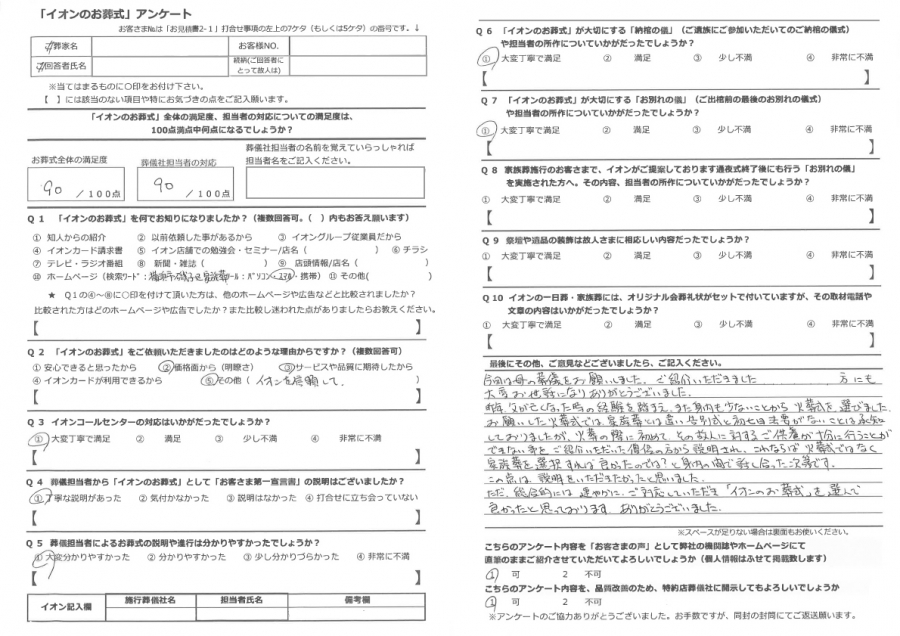 「イオンのお葬式」アンケート
お客さま№は「お見積書2-1」打合せ事項の左上の7ケタ（もしくは5ケタ）の番号です。↓
葬家名
お客様NO.
回答者氏名
続柄(ご回答者にとって故人は)
※当てはまるものに○印をお付け下さい。
【　】には該当のない項目や特にお気づきの点をご記入願います。
「イオンのお葬式」全体の満足度、担当者の対応についての満足度は、
100点満点中何点になるでしょうか？
お葬式全体の満足度
90 / 100点
葬儀社担当者の対応
90 / 100点
葬儀社担当者の名前を覚えていらっしゃれば
担当者名をご記入ください。
Q 1　「イオンのお葬式」を何でお知りになりましたか？（複数回答可。（　）内もお答え願います）
① 知人からの紹介　② 以前依頼した事があるから　③ イオングループ従業員だから
④ イオンカード請求書　⑤ イオン店舗での勉強会・セミナー/店名（　）⑥ チラシ
⑦ テレビ・ラジオ番組　⑧ 新聞・雑誌（　）⑨ 店頭情報/店名（　）
⑩ ホームページ（検索ﾜｰﾄﾞ：　ﾂｰﾙ：ﾊﾟｿｺﾝ・ｽﾏﾎ・携帯）⑪ その他(　)
★ Q1の④～⑧に○印を付けて頂いた方は、他のホームページや広告などと比較されましたか？
比較された方はどのホームページや広告でしたか？また比較し迷われた点がありましたらお教えください。
【　】
Q 2　「イオンのお葬式」をご依頼いただきましたのはどのような理由からですか？（複数回答可）
① 安心できると思ったから　② 価格面から（明瞭さ）　③ サービスや品質に期待したから
④ イオンカードが利用できるから　⑤ その他（ イオンを信頼して. ）
Q 3　イオンコールセンターの対応はいかがだったでしょうか？
① 大変丁寧で満足　② 満足　③ 少し不満　④ 非常に不満
【　】
Q 4　葬儀担当者から「イオンのお葬式」として「お客さま第一宣言書」の説明はございましたか？
① 丁寧な説明があった　② 気がかなかった　③ 説明はなかった　④ 打合せに立ち会っていない
【　】
Q 5　葬儀担当者によるお葬式の説明や進行は分かりやすかったでしょうか？
① 大変分かりやすかった　② 分かりやすかった　③ 少し分かりづらかった　④ 非常に不満
【　】
イオン記入欄　施行葬儀社名　担当者氏名　備考欄
Q 6　「イオンのお葬式」が大切にする「納棺の儀」（ご遺族にご参加いただいてのご納棺の儀式）
や担当者の所作についていかがだったでしょうか？
① 大変丁寧で満足　② 満足　③ 少し不満　④ 非常に不満
【　】
Q 7　「イオンのお葬式」が大切にする「お別れの儀」（ご出棺前の最後のお別れの儀式）
や担当者の所作についていかがだったでしょうか？
① 大変丁寧で満足　② 満足　③ 少し不満　④ 非常に不満
【　】
Q 8　家族葬施行のお客さまで、イオンがご提案しております通夜式終了後にも行う「お別れの儀」
を実施された方へ。その内容、担当者の所作についていかがだったでしょうか？
① 大変丁寧で満足　② 満足　③ 少し不満　④ 非常に不満
【　】
Q 9　祭壇や遺品の装飾は故人さまに相応しい内容だったでしょうか？
① 大変丁寧で満足　② 満足　③ 少し不満　④ 非常に不満
【　】
Q 10　イオンの一日葬・家族葬には、オリジナル会葬礼状がセットで付いていますが、その取材電話や
文章の内容はいかがだったでしょうか？
① 大変丁寧で満足　② 満足　③ 少し不満　④ 非常に不満
【　】
最後にその他、ご意見などございましたら、ご記入ください。
今回は母の葬儀をお願いしました。ご紹介いただきました　方にも
大変お世話になりありがとうございました.
昨年父が亡くなった時の経験を踏まえ、また身内も少ないことから火葬式を選びました.
お願いした火葬式では、家族葬とは違い告別式と初七日法要がないことは承知
しておりましたが、火葬の際に初めて、その故人に対するご供養が十分に行うことが
できない事を、ご紹介いただいた僧侶の方から説明され、これならば火葬式ではなく
家族葬を選択すれば良かったのでは？と身内の間で話し合った次第です.
この点は、説明をいただきたかったと思いました.
ただ、総合的には速やかに、ご対応していただき「イオンのお葬式」を選んで
良かったと思っております　ありがとうございました.
※スペースが足りない場合は裏面もお使いください。
こちらのアンケート内容を「お客さまの声」として弊社の機関誌やホームページにて
直筆のままご紹介させていただいてよろしいでしょうか（個人情報はふせて掲載致します）
1　可　2　不可
こちらのアンケート内容を、品質改善のため、特約店葬儀社に開示してもよろしいでしょうか
1　可　2　不可
※アンケートのご協力ありがとうございました。お手数ですが、同封の封筒にてご返送願います。